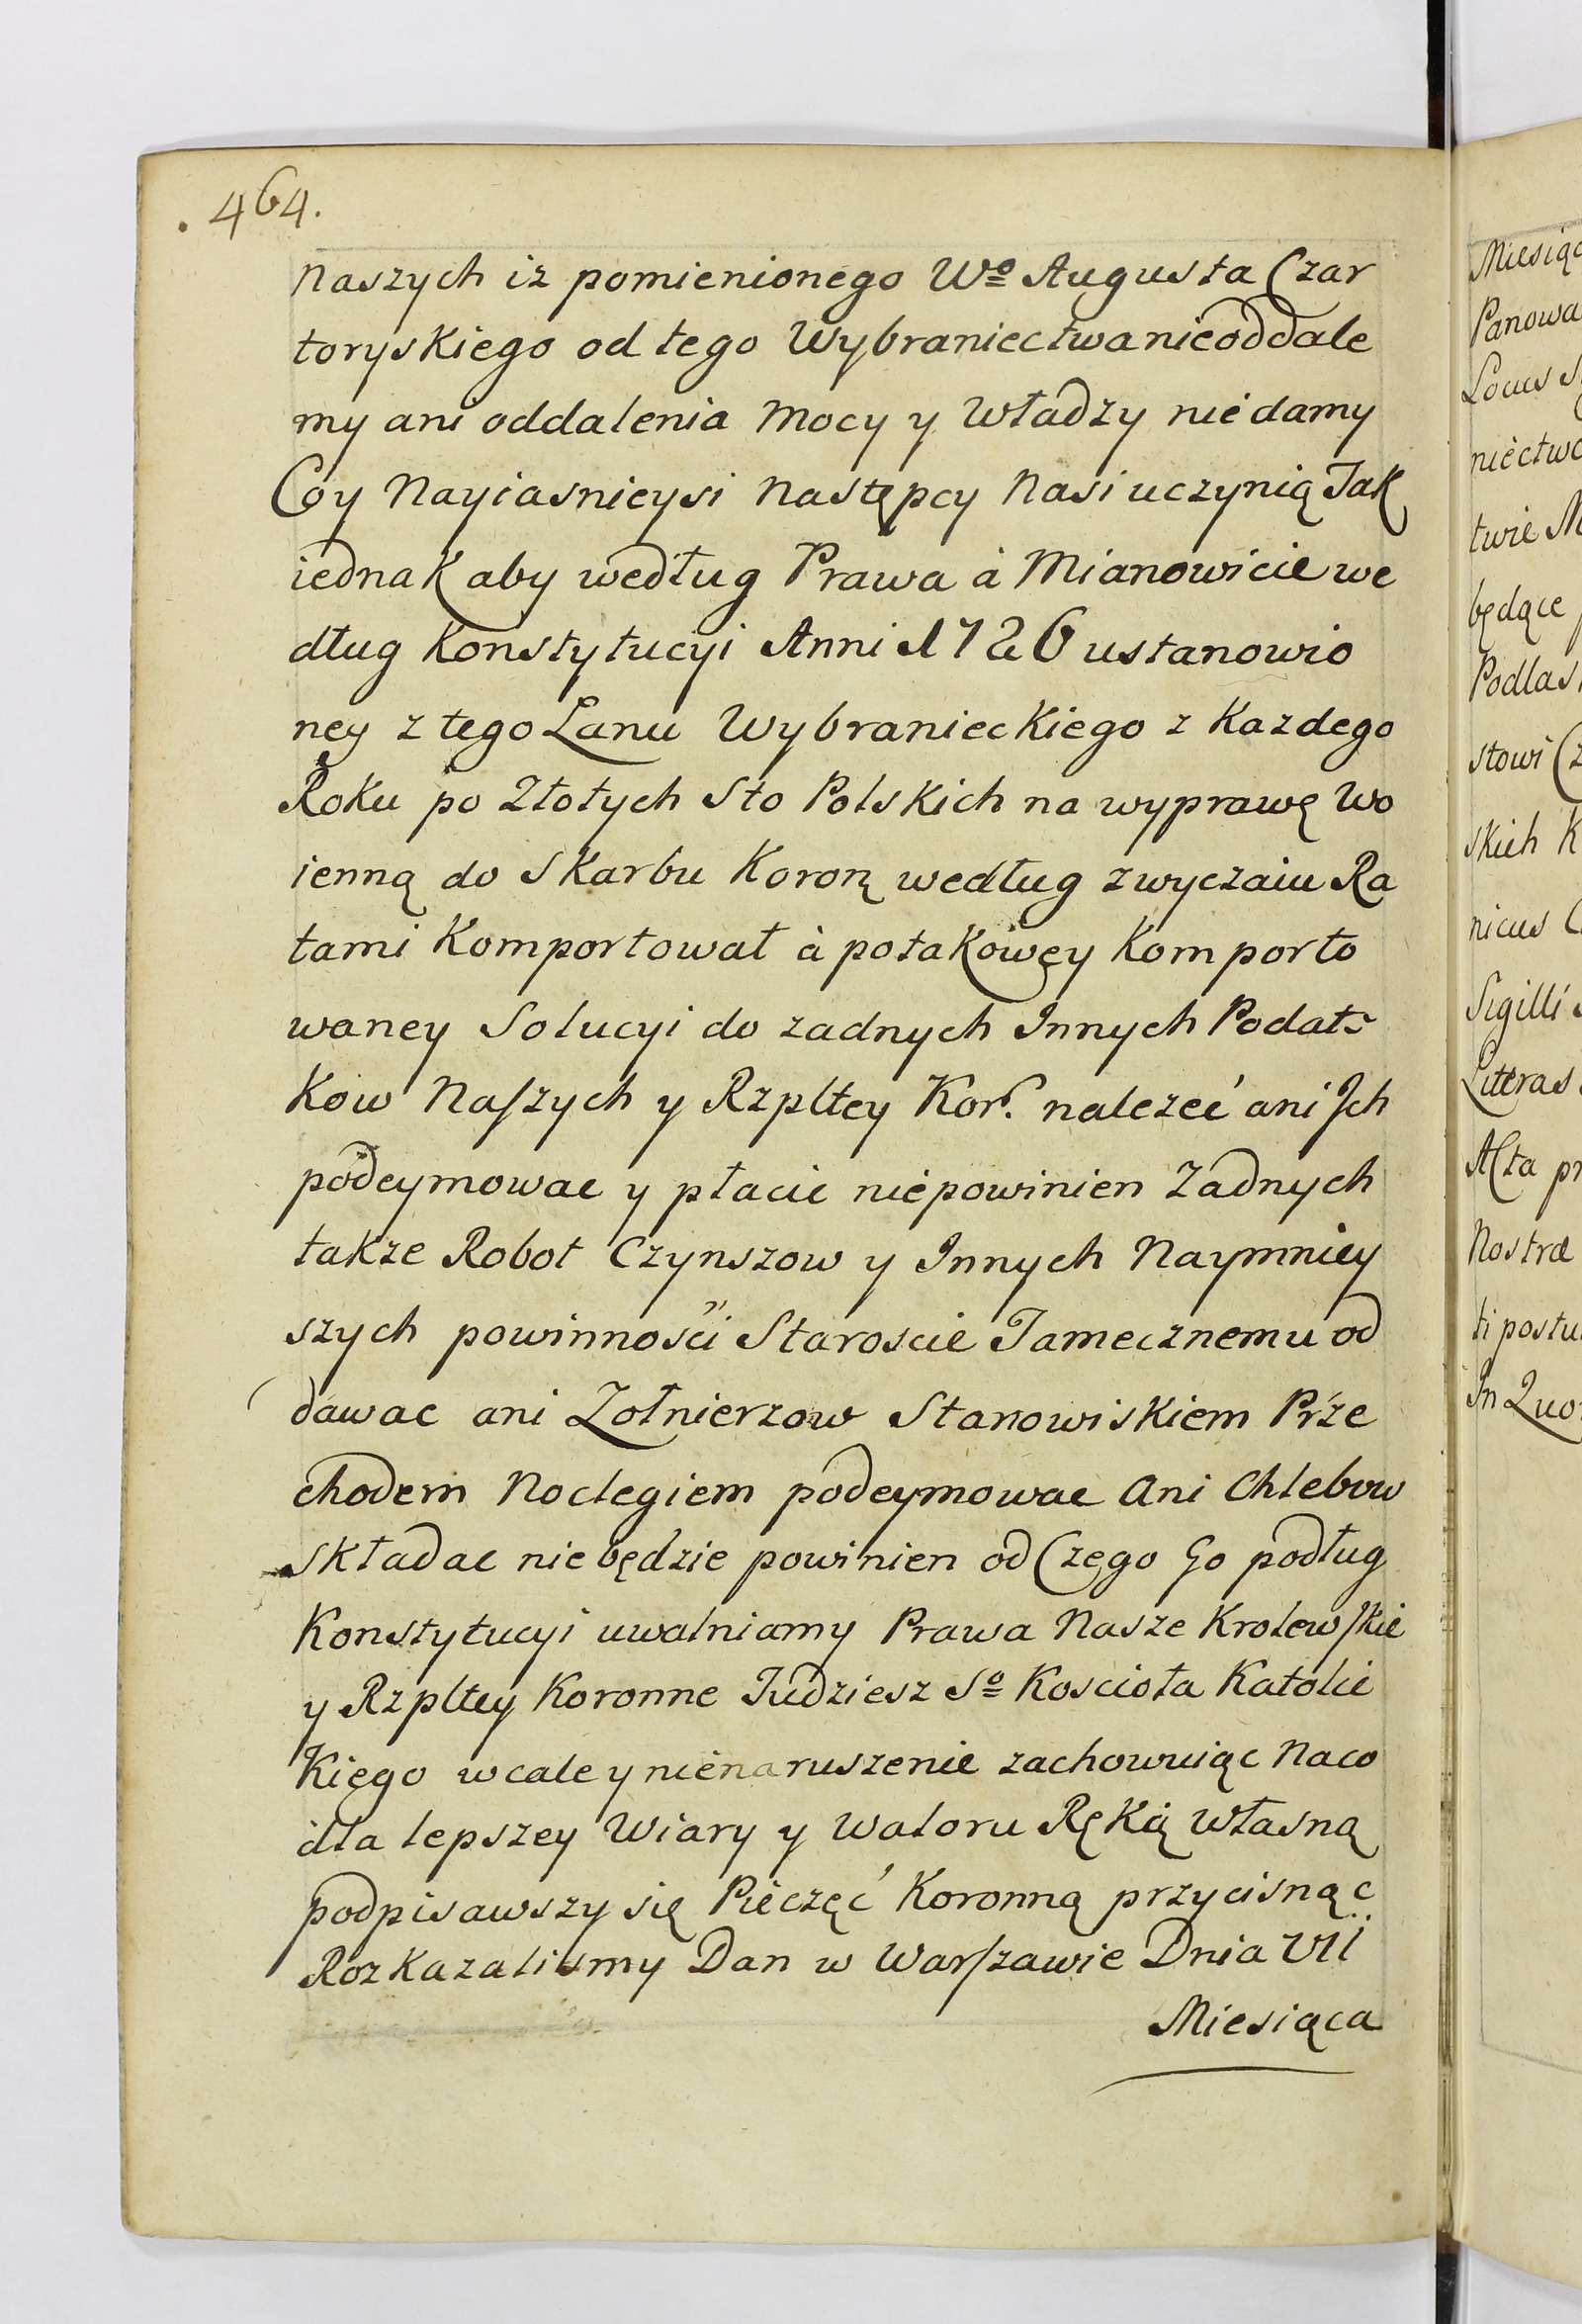 . 464.
Naszych iz pomienionego Wº Augusta Czar
toryskiego od tego Wybraniectwa nieoddale
my ani oddalenia Mocy y Władzy nie damy
Coy Nayiasnieysi Następcy Nasi uczynią Jak
iednak aby według Prawa à Mianowicie we
dług Konstytucyi Anni 1726 ustanowio
ney z tego Lanu Wybranieckiego z Kazdego
Roku po Złotych Sto Polskich na wyprawę Wo
ienną do Skarbu Koronę według zwyczaiu Ra
tami Komportował à potakowęy Komporto
waney Solucyi do zadnych Innych Podat-
Kow Naszych y Rzpltey Kor. nalezeć ani Ich
podeymowac y płacic niepowinien Zadnych
takze Robot Czynszow y Innych Naymniey
szych powinności Staroscie Tamecznemu od
dawac ani Zołnierzow Stanowiskiem Prze
chodem Noclegiem podeymowac Ani Chlebow
składac nie będzie powinien od Czego Go podług
Konstytucyi uwalniamy Prawa Nasze Krolewskie
y Rzpltey Koronne Tudziesz Sº Koscioła Katolic
Kiego wcale y nienaruszenie zachowuiąc Naco
dla lepszey Wiary y Waloru Ręką Własną
podpisawszy się Pieczęć Koronną przycisnąc
Rozkazalismy Dan w Warszawie Dnia VII
Miesiąca
Panowa
nièctwa
będące
Podlas
stowi Cz
skich K
nicus
Sigilli
Literas
Acta pr
Nostræ
ti postu
In Quo